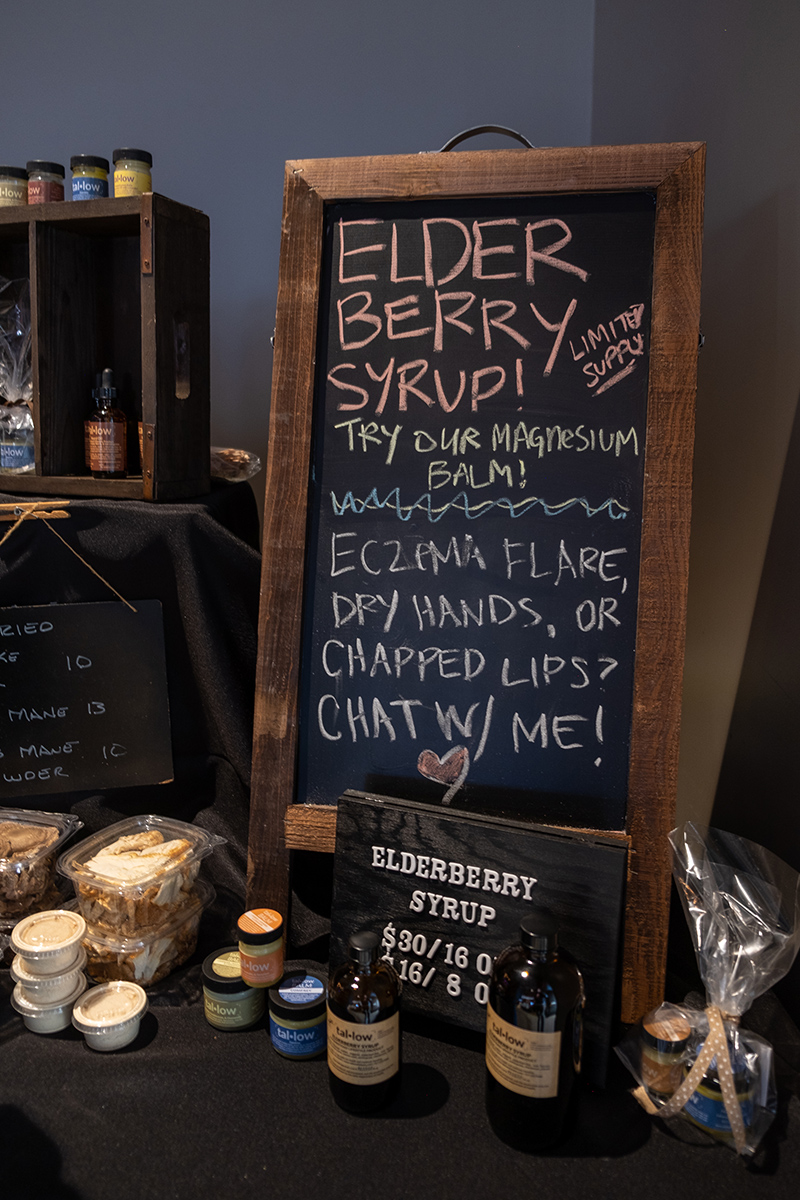 tal·low
tal·low
tal·low
ELDER
BERRY
SYRUP!
LIMITED
SUPPLY
TRY OUR MAGNESIUM
BALM!
ECZEMA FLARE,
DRY HANDS, OR
CHAPPED LIPS?
CHAT W/ ME!
tal·low
tal·low
RIED
KE 10
MANE 13
MANE 10
WDER
ELDERBERRY
SYRUP
$30/16 O
$16/ 8 O
tal·low
tal·low
BALM
tal·low
tal·low
ELDERBERRY SYRUP
tal·low
ELDERBERRY SYRUP